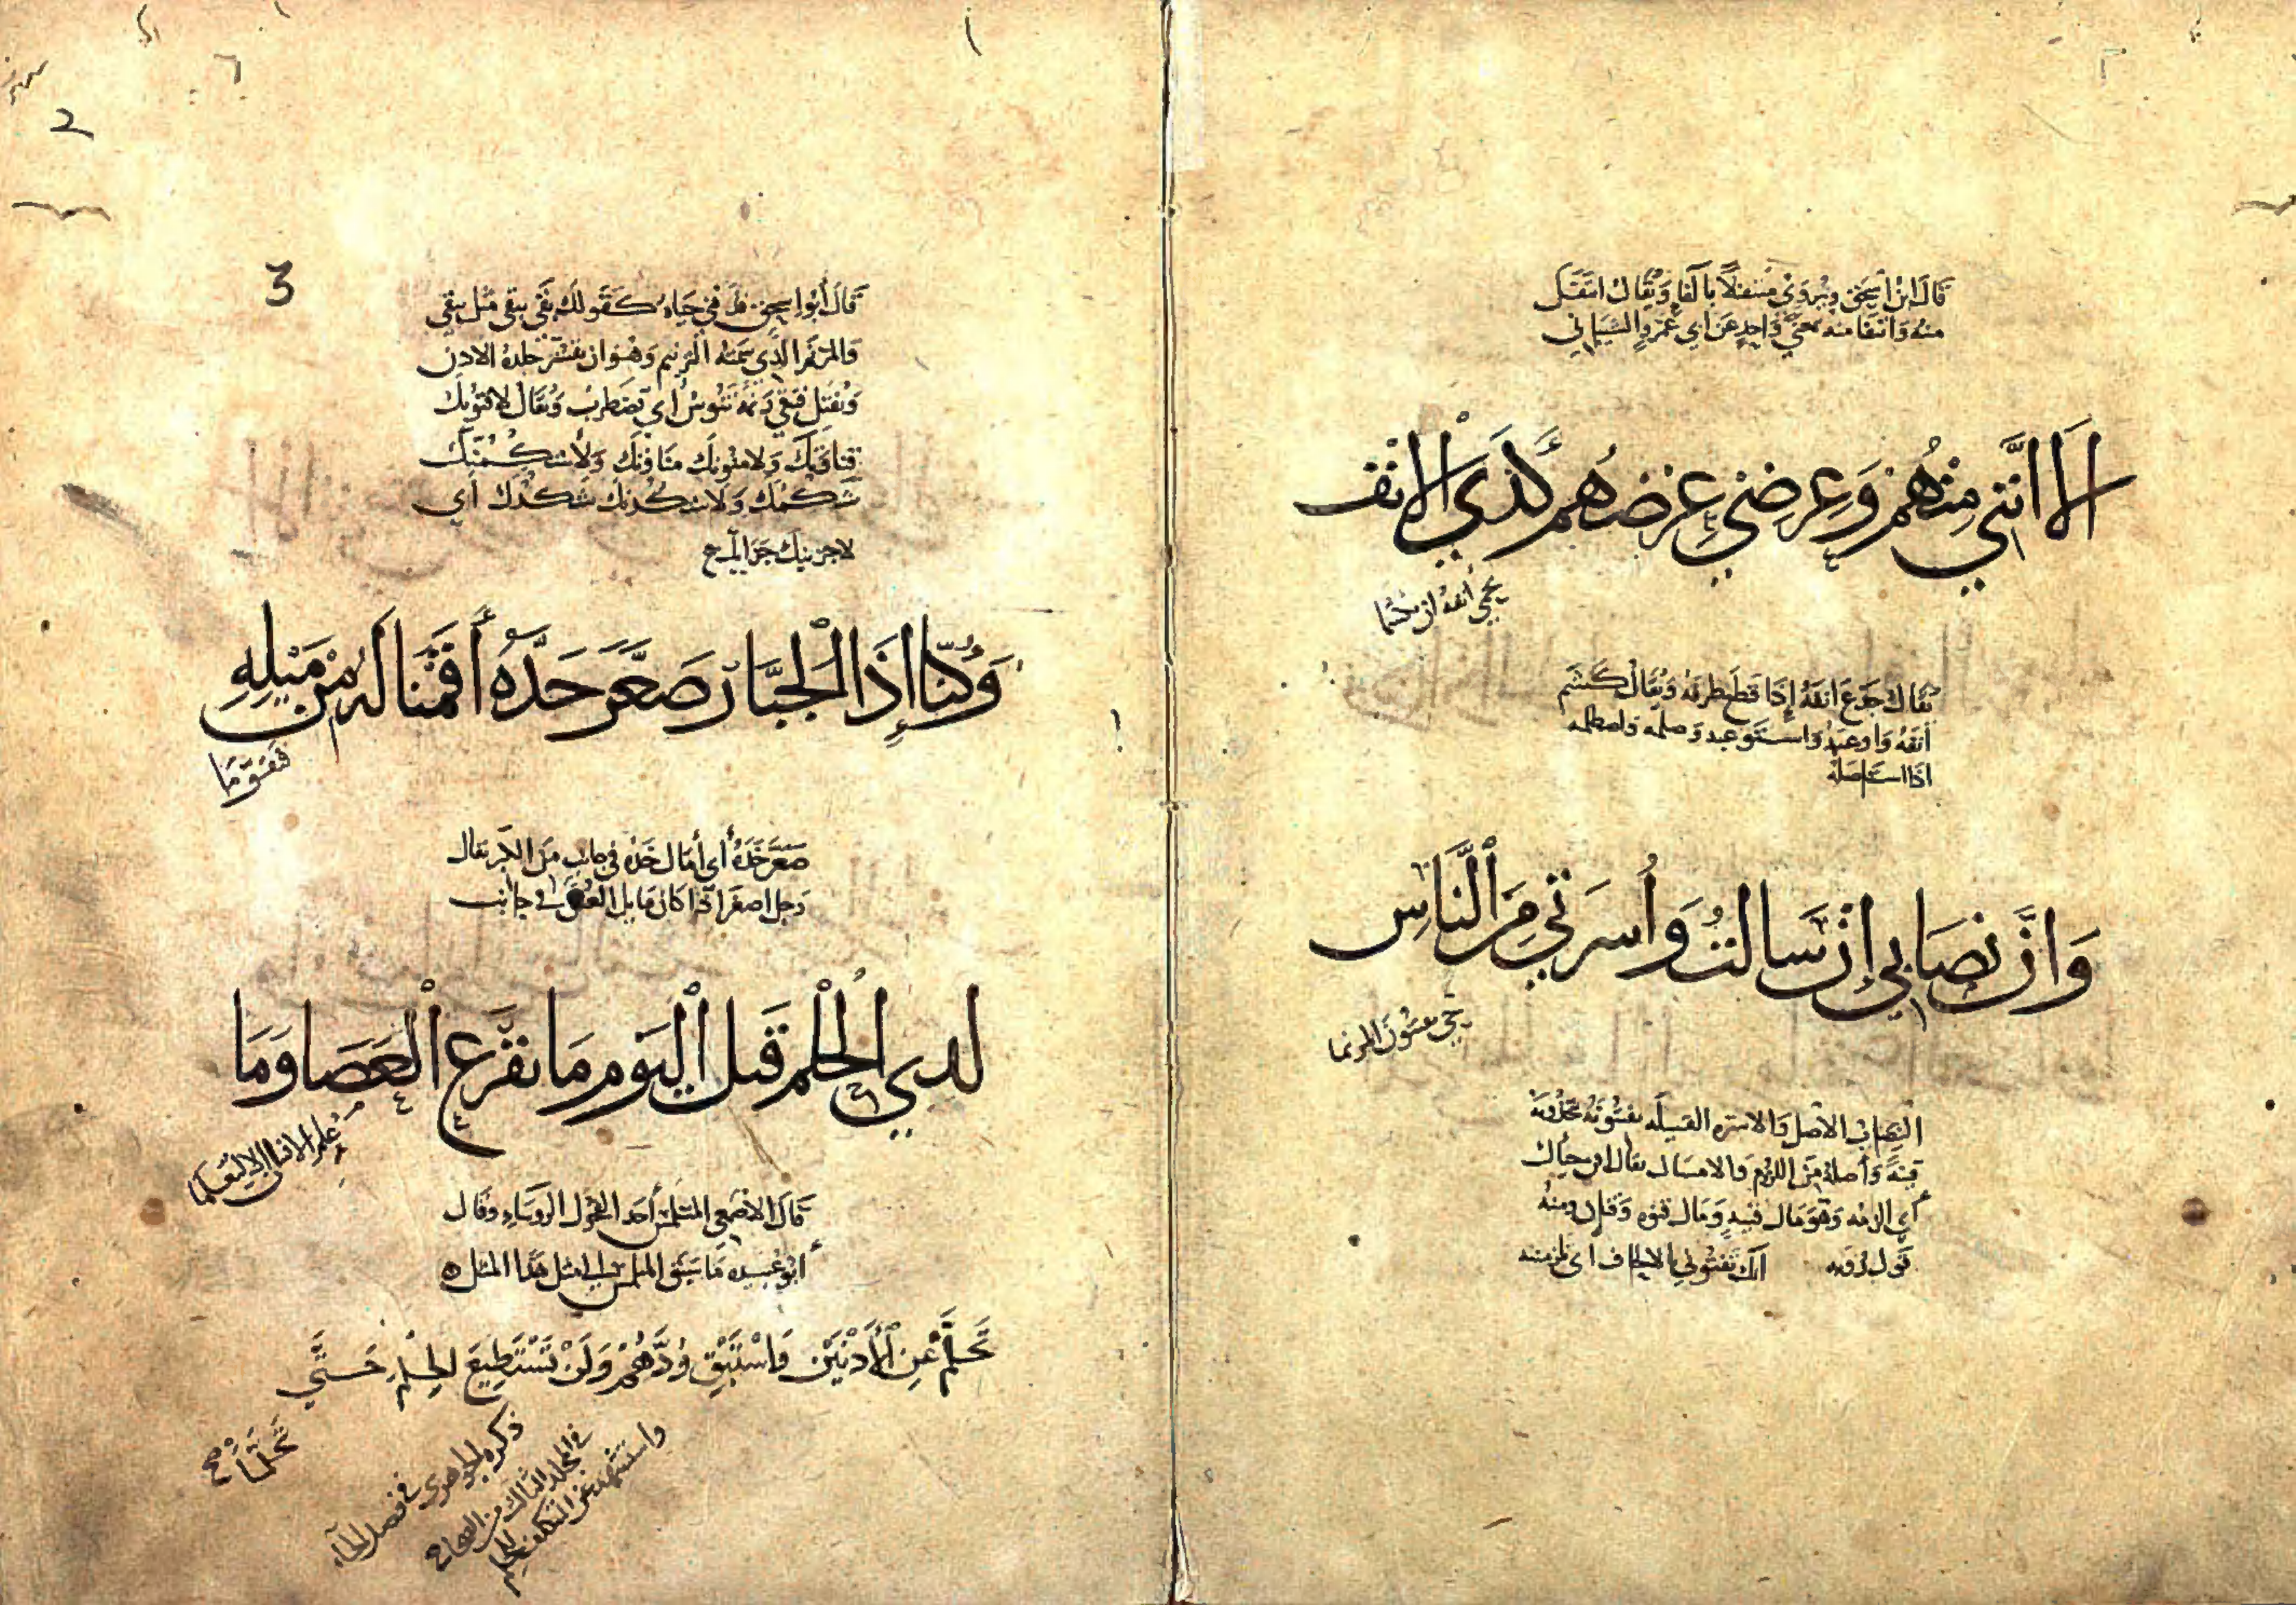 قال ابن اسحق ويروى منتفلا بالفاء ويقال انتفل
منه وانتفا منه بمعنى واحد عن ابي عمرو الشيباني
الا انني منهم وعرضي عرضهم كذي الانف
يحمي أنفه ان يكشما
يقال جدع انفه إذا قطع طرفه ويقال كشم
أنفه واوعبه واستوعبه وصلمه واصطلمه
اذا استاصله
وان نصابي إن سالت وأسرتي من الناس
حي يقتنون المزنما
النصاب الاصل والاسرة القبيله يقتنونه يتخذونه
قنية وأصله من اللزوم والامساك يقال اقن حياك
أي الزمه وهو مال قنيه ومال قنوه وقنيان ومنه
قول
3
2
قال أبو اسحق قنى حياه كقولك بقي يبقى مثل بقي
والمزنم الذي سمته التزنيم وهو ان يقشر جلدة الاذن
ويفتل فتبقى زنمة تنوس أي تضطرب ويقال لاقنونك
قناوتك ولامنونك مناوتك ولاشكمنك
شكمك ولاشكدنك شكدك أي
لاجزينك جزاك ع
وكنا إذا الجبار صعر خده أقمنا له من ميله
فتقوما
صعر خده أي أمال خده في جانب من الكبر يقال
رجل اصعر اذا كان مايل العنق في جانب
لذي الحلم قبل اليوم ما تقرع العصا وما
علم الانسان الا ليعلما
قال الاصمعي المتلمس أحد الفحول الروساء وقال
أبو عبيده ما سبق المتلمس الى مثل هذا المثل
تحلم عن الأدنين واستبق ودهم ولن تستطيع الحلم حتى
تحلما صح
ذكره الجوهري في فصل الحاء
في المجلد الثالث من الصحاح
واستشهد عن التكلف للحلم